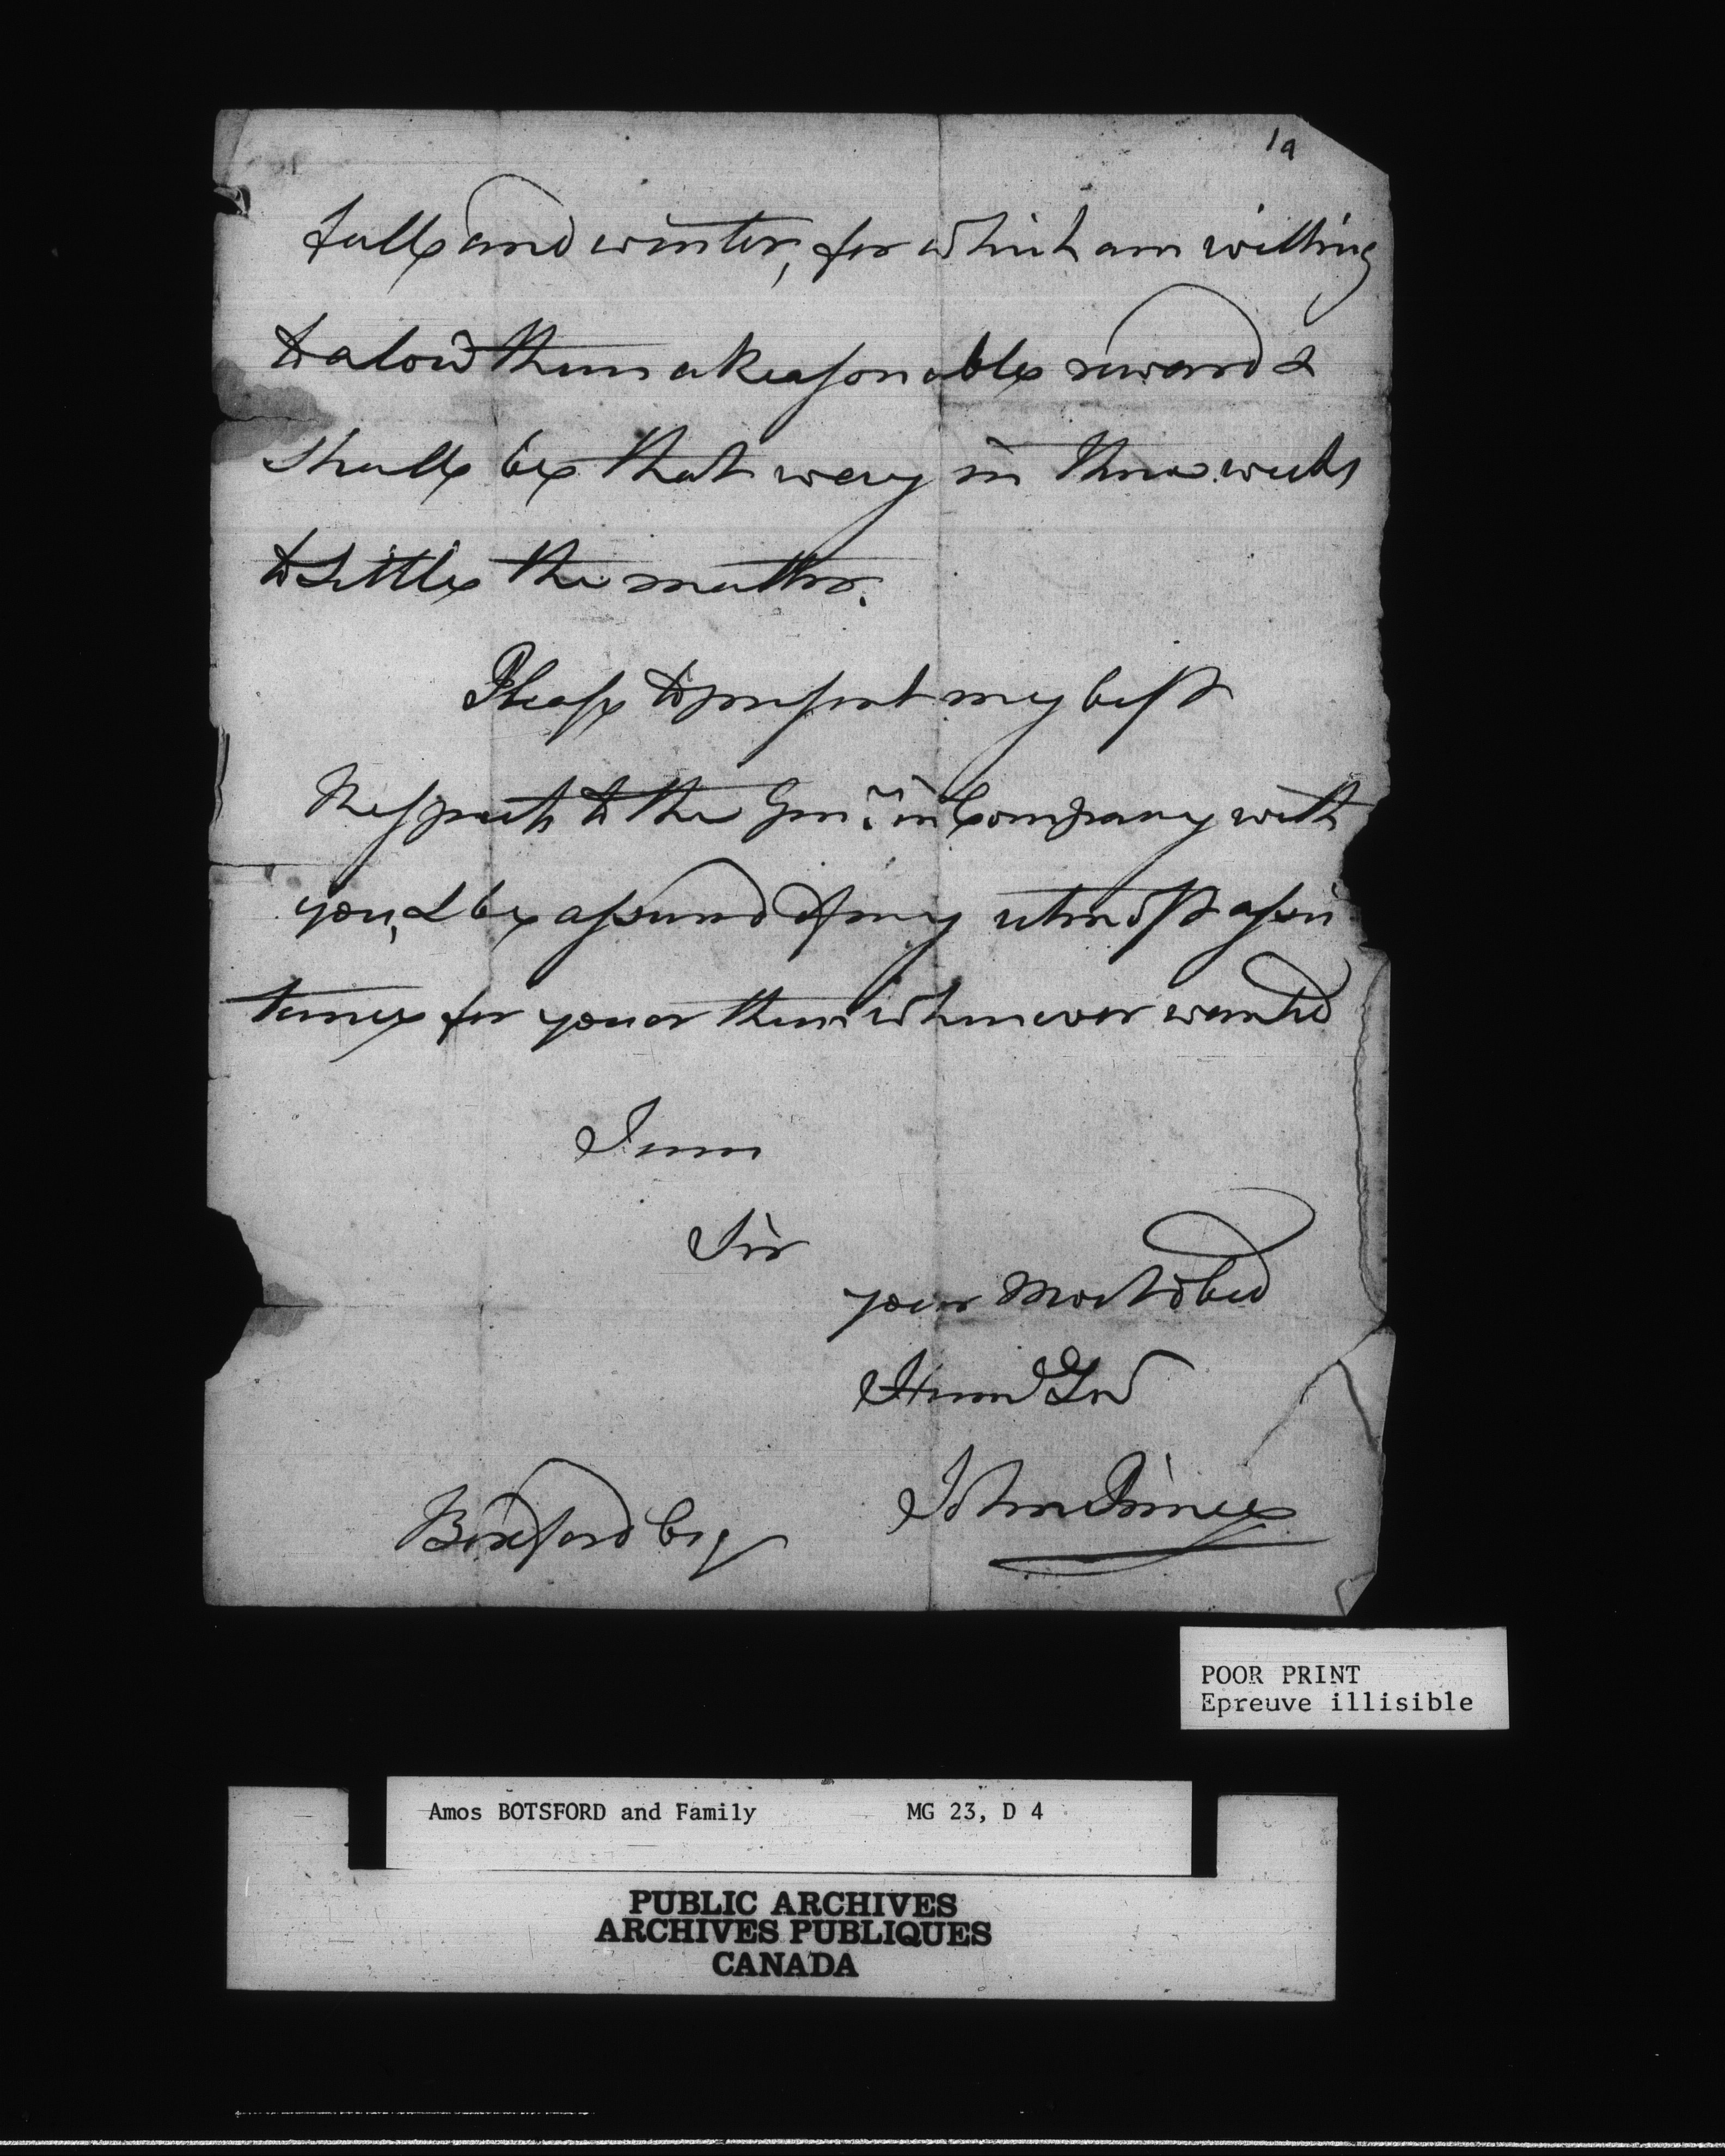 1a
fall and winter, for which am willing
to alow them a Reasonable reward &
shall be that way in three weeks
to Settle the matter.
Please to present my best
Respects to the Gen.n in Company with
you, & be assured of my utmost assis
tance for you or them whenever wanted
I am
Sir
your Most Obed
Hum Ser
John Prince
Botsford Esq
POOR PRINT
Epreuve illisible
Amos BOTSFORD and Family MG 23, D 4
PUBLIC ARCHIVES
ARCHIVES PUBLIQUES
CANADA